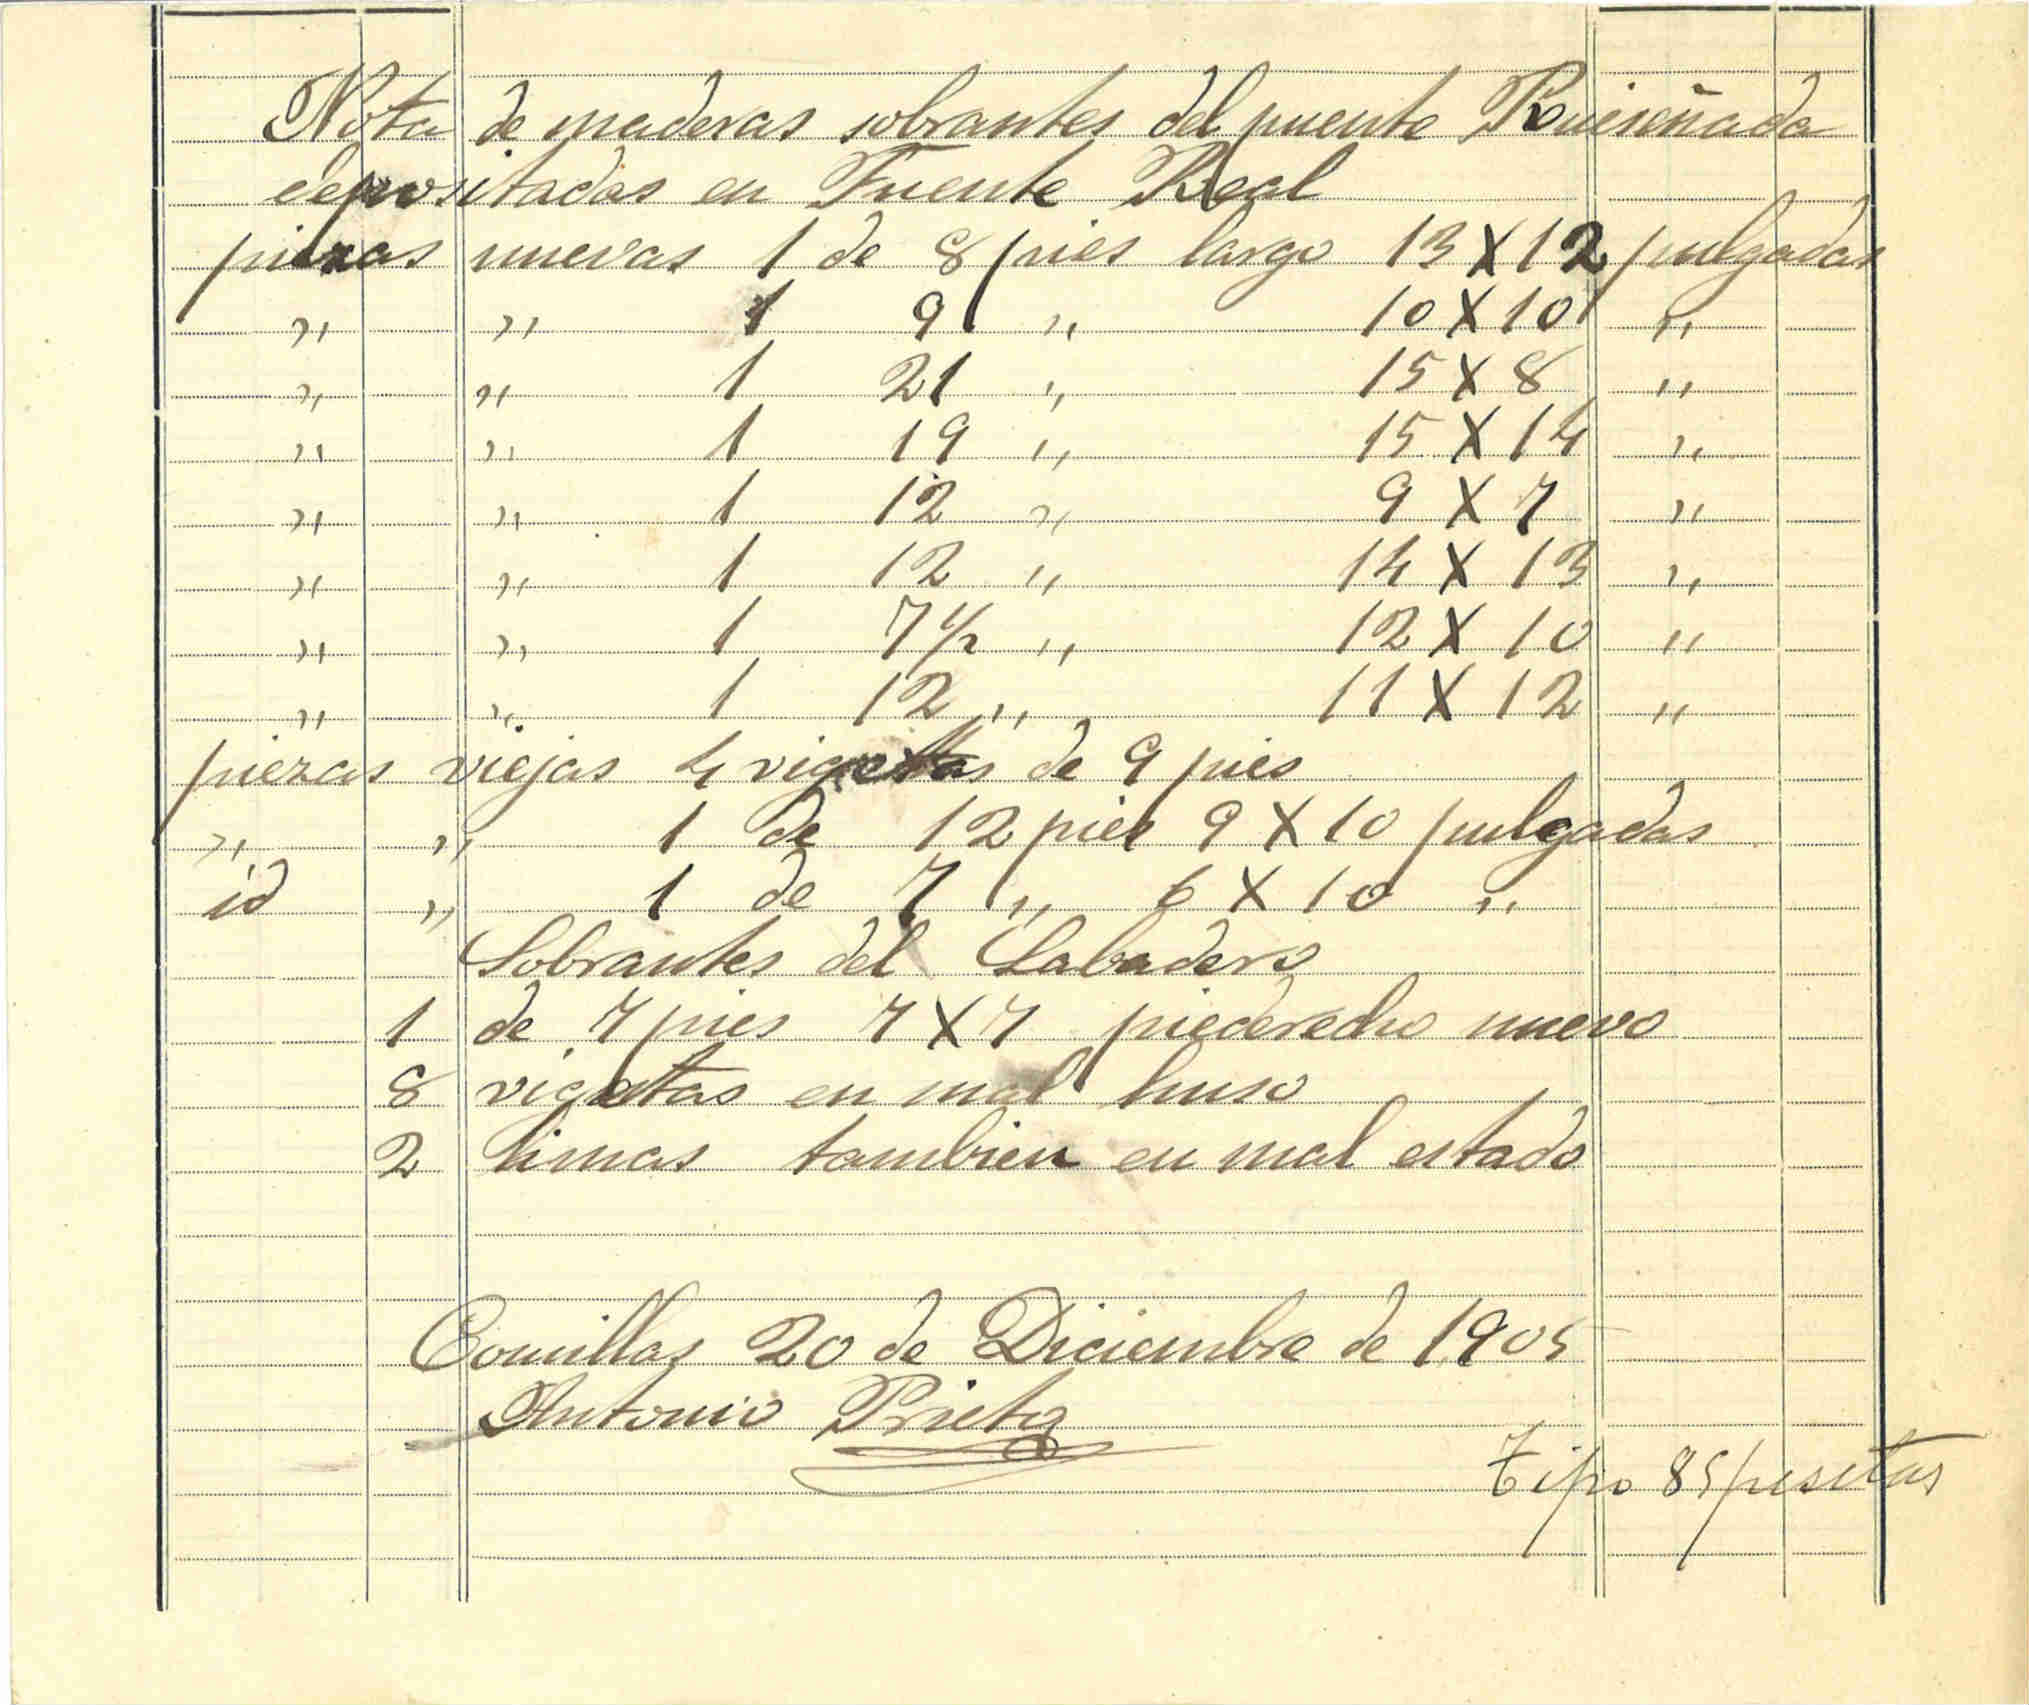 Nota de maderas sobrantes del puente Ruiseñada
depositadas en Fuente Real
piezas nuevas 1 de 8 pies largo 13 X 12 pulgadas
" " 1 9 " 10 X 10 "
" " 1 21 " 15 X 8 "
" " 1 19 " 15 X 14 "
" " 1 12 " 9 X 7 "
" " 1 12 " 14 X 13 "
" " 1 7 1/2 " 12 X 10 "
" " 1 12 " 11 X 12 "
piezas viejas 4 viguetas de 9 pies
" " 1 de 12 pies 9 X 10 pulgadas
id " 1 de 7 " 6 X 10 "
Sobrantes del Labadero
1 de 7 pies 7 X 7 piederecho nuevo
8 viguetas en mal huso
2 limas tambien en mal estado
Comillas 20 de Diciembre de 1905
Antonio Prieto
Tipo 85 pesetas